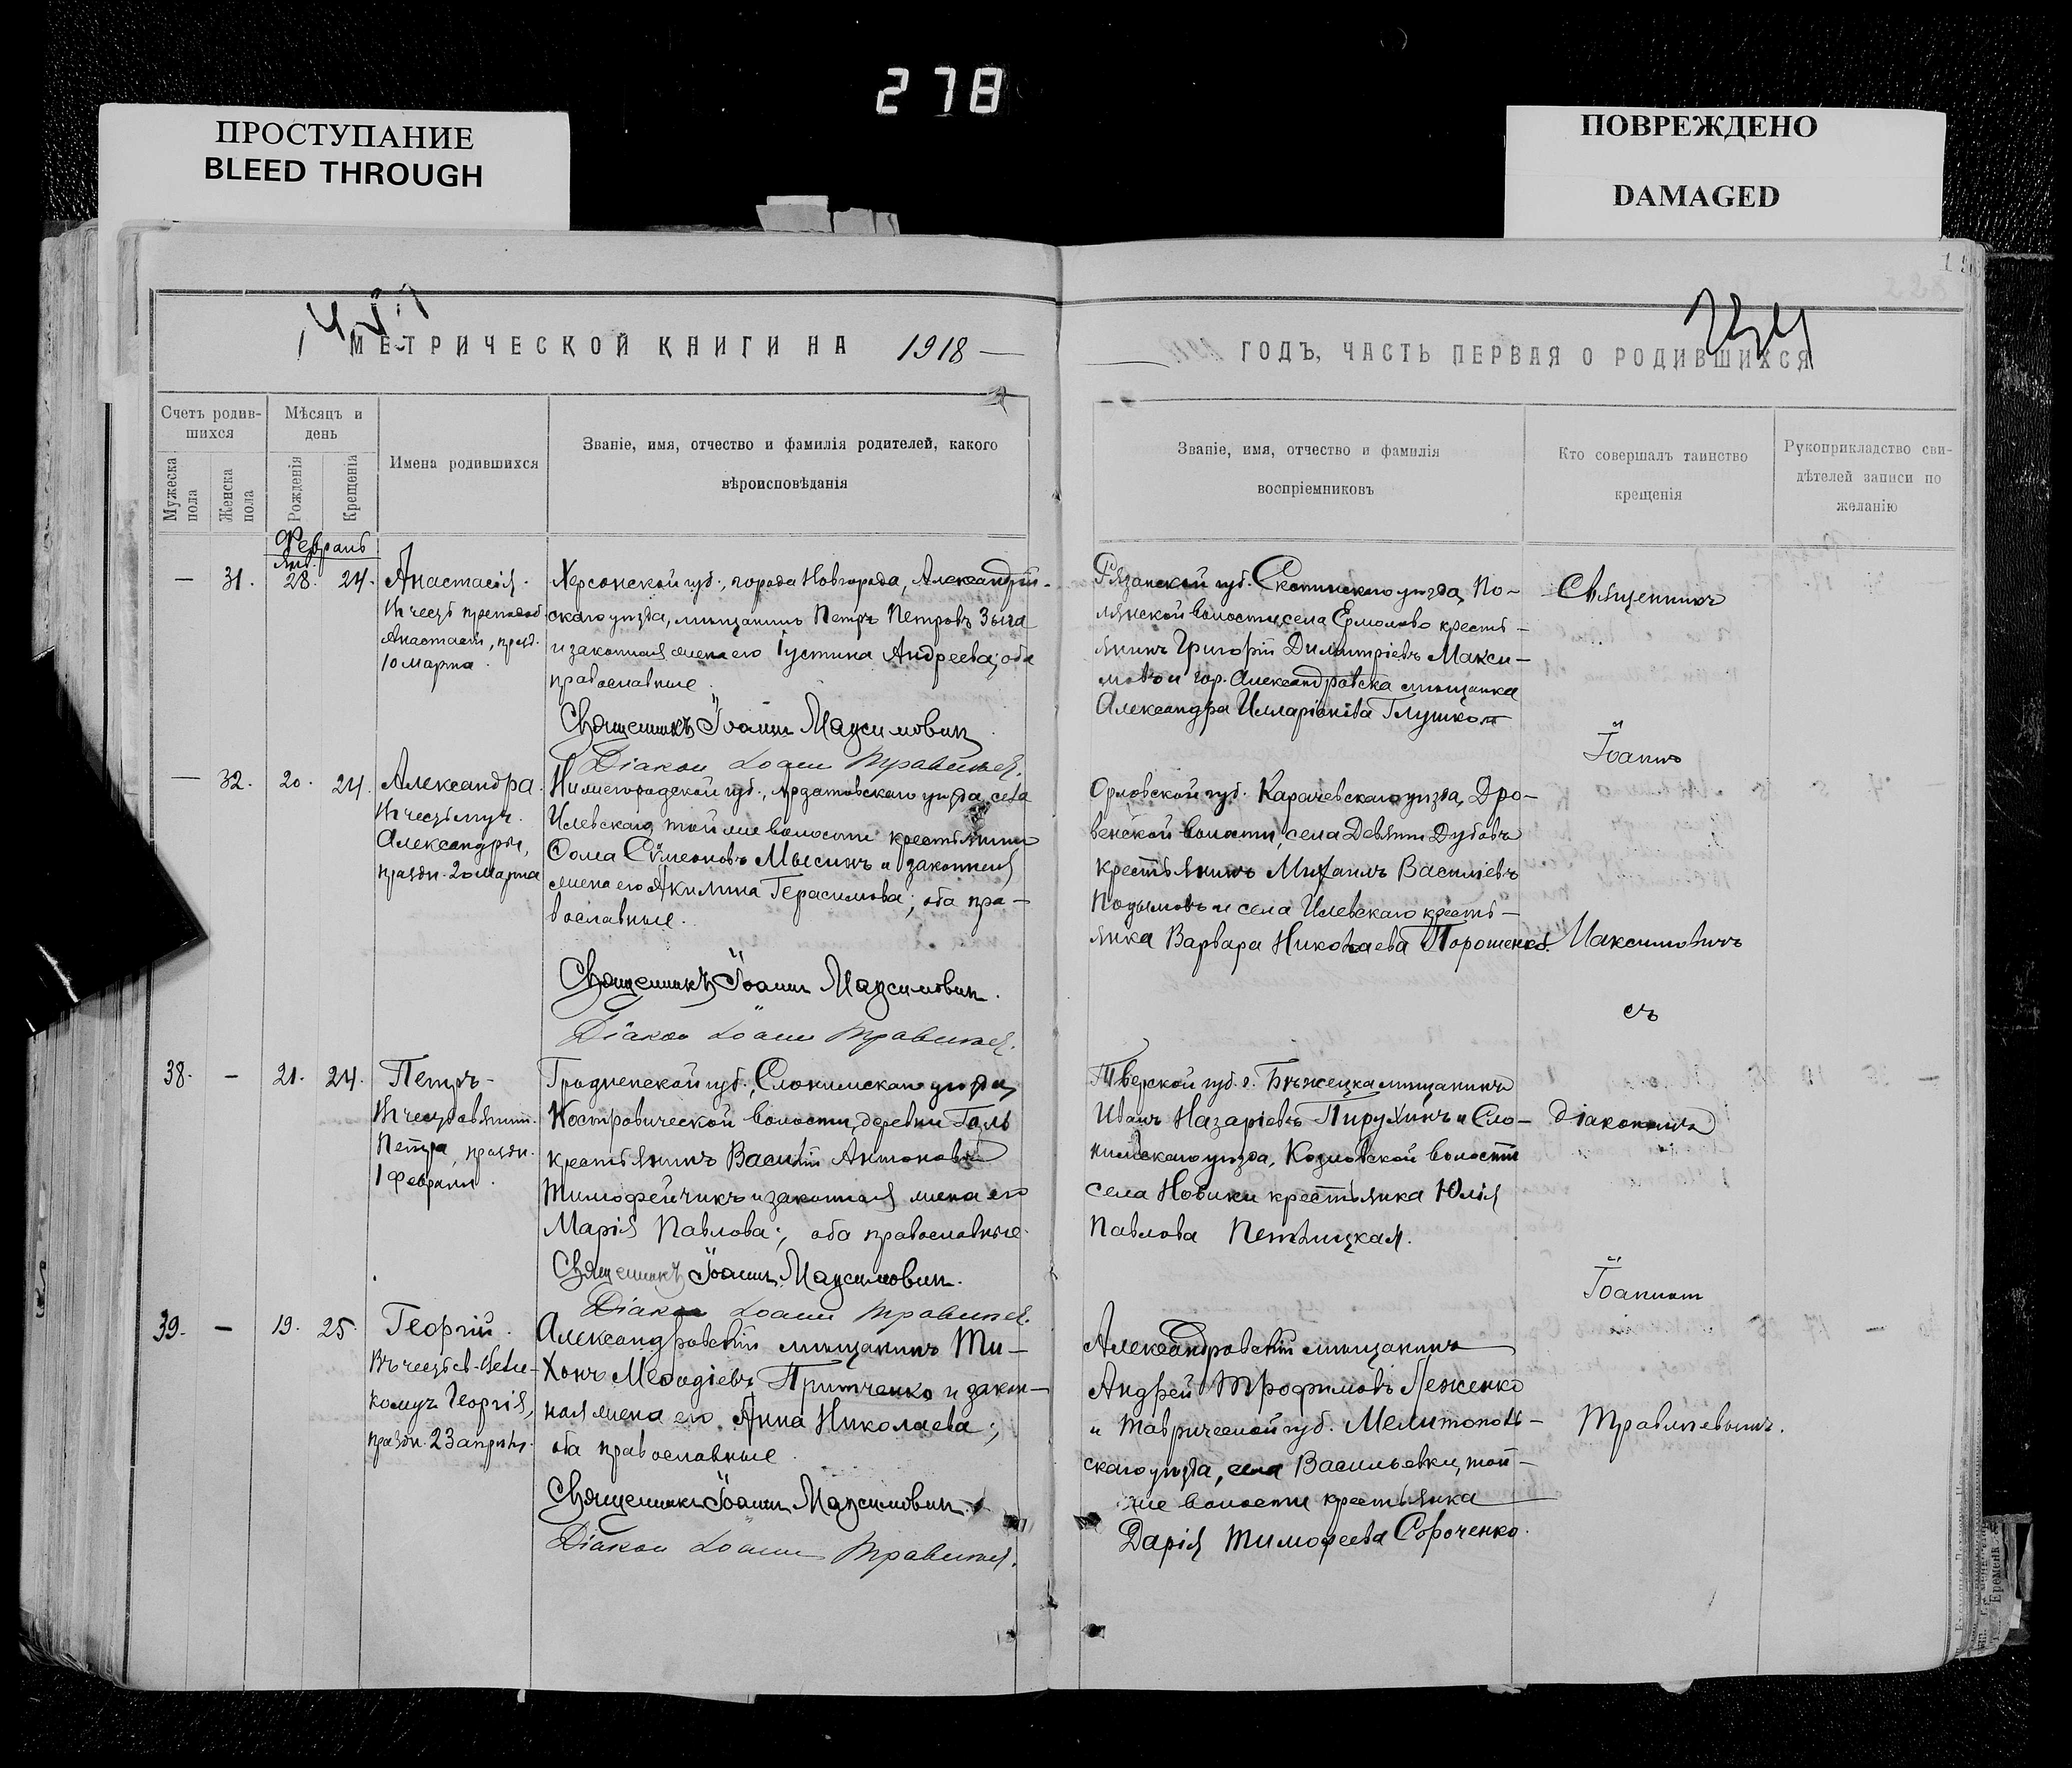 278
ПРОСТУПАНИЕ
BLEED THROUGH
ПОВРЕЖДЕНО
DAMAGED
МЕТРИЧЕСКОЙ КНИГИ НА 1918
Счетъ родив-
шихся
Мѣсяцъ и
день
Мужеска
пола
Женска
пола
Рожденія
Крещенія
Имена родившихся
Званіе, имя, отчество и фамилія родителей, какого
вѣроисповѣданія
Февраль
Янв.
— 31. 28. 24.
Анастасія.
Въ честь преподоб.
Анастасіи, празд.
10 марта.
Херсонской губ., города Новгорода, Александрій-
скаго уѣзда, мѣщанинъ Петръ Петровъ Зыга
и законная жена его Іустина Андреева; оба
православные.
Священникъ Іоаннъ Максимовичъ
Діакон Іоанн Травлевъ.
— 32. 20. 24.
Александра.
Въ честь муч.
Александры,
праздн. 20 марта
Нижегородской губ., Ардатовскаго уѣзда, села
Илевскаго, той же волости крестьянинъ
Ѳома Сѵмеоновъ Мысинъ и законная
жена его Акилина Герасимова; оба пра-
вославные.
Священникъ Іоаннъ Максимовичъ.
38. — 21. 24.
Петръ
Въ честь святит.
Петра, праздн.
1 февраля.
Гродненской губ., Слонимскаго уѣзда,
Костровической волости, деревни Галь
крестьянинъ Василій Антоновъ
Тимофейчикъ и законная жена его
Марія Павлова; оба православные.
Священникъ Іоаннъ Максимовичъ.
39. — 19. 25.
Георгій.
Въ честь св. Вели-
комуч. Георгія,
праздн. 23 апрѣля.
Александровскій мѣщанинъ Ти-
хонъ Меѳодіевъ Притченко и закон-
ная жена его Анна Николаева;
оба православные.
Священникъ Іоаннъ Максимовичъ.
ГОДЪ, ЧАСТЬ ПЕРВАЯ О РОДИВШИХСЯ
Званіе, имя, отчество и фамилія
воспріемниковъ
Кто совершалъ таинство
крещенія
Рукоприкладство сви-
дѣтелей записи по
желанію
Рязанской губ. Скопинскаго уѣзда, По-
лянской волости, села Ермолово кресть-
янинъ Григорій Димитріевъ Макси-
мовъ и гор. Александровска мѣщанка
Александра Илларіонова Глушко
Орловской губ. Карачевскаго уѣзда, Дро-
венской волости, села Девяти Дубовъ
крестьянинъ Михаилъ Василіевъ
Подымовъ и села Илевскаго кресть-
янка Варвара Николаева Порошенко.
Тверской губ. г. Бѣжецка мѣщанинъ
Иванъ Назаріевъ Пирухинъ и Сло-
нимскаго уѣзда, Козловской волости
села Новики крестьянка Юлія
Павлова Петлицкая.
Александровскій мѣщанинъ
Андрей Трофимовъ Леженко
и Таврической губ. Мелитополь-
скаго уѣзда, села Васильевки, той
же волости крестьянка
Дарія Тимофеева Сороченко.
Священникъ
Іоаннъ
Максимовичъ
съ
Діакономъ
Іоанномъ
Травлевымъ.